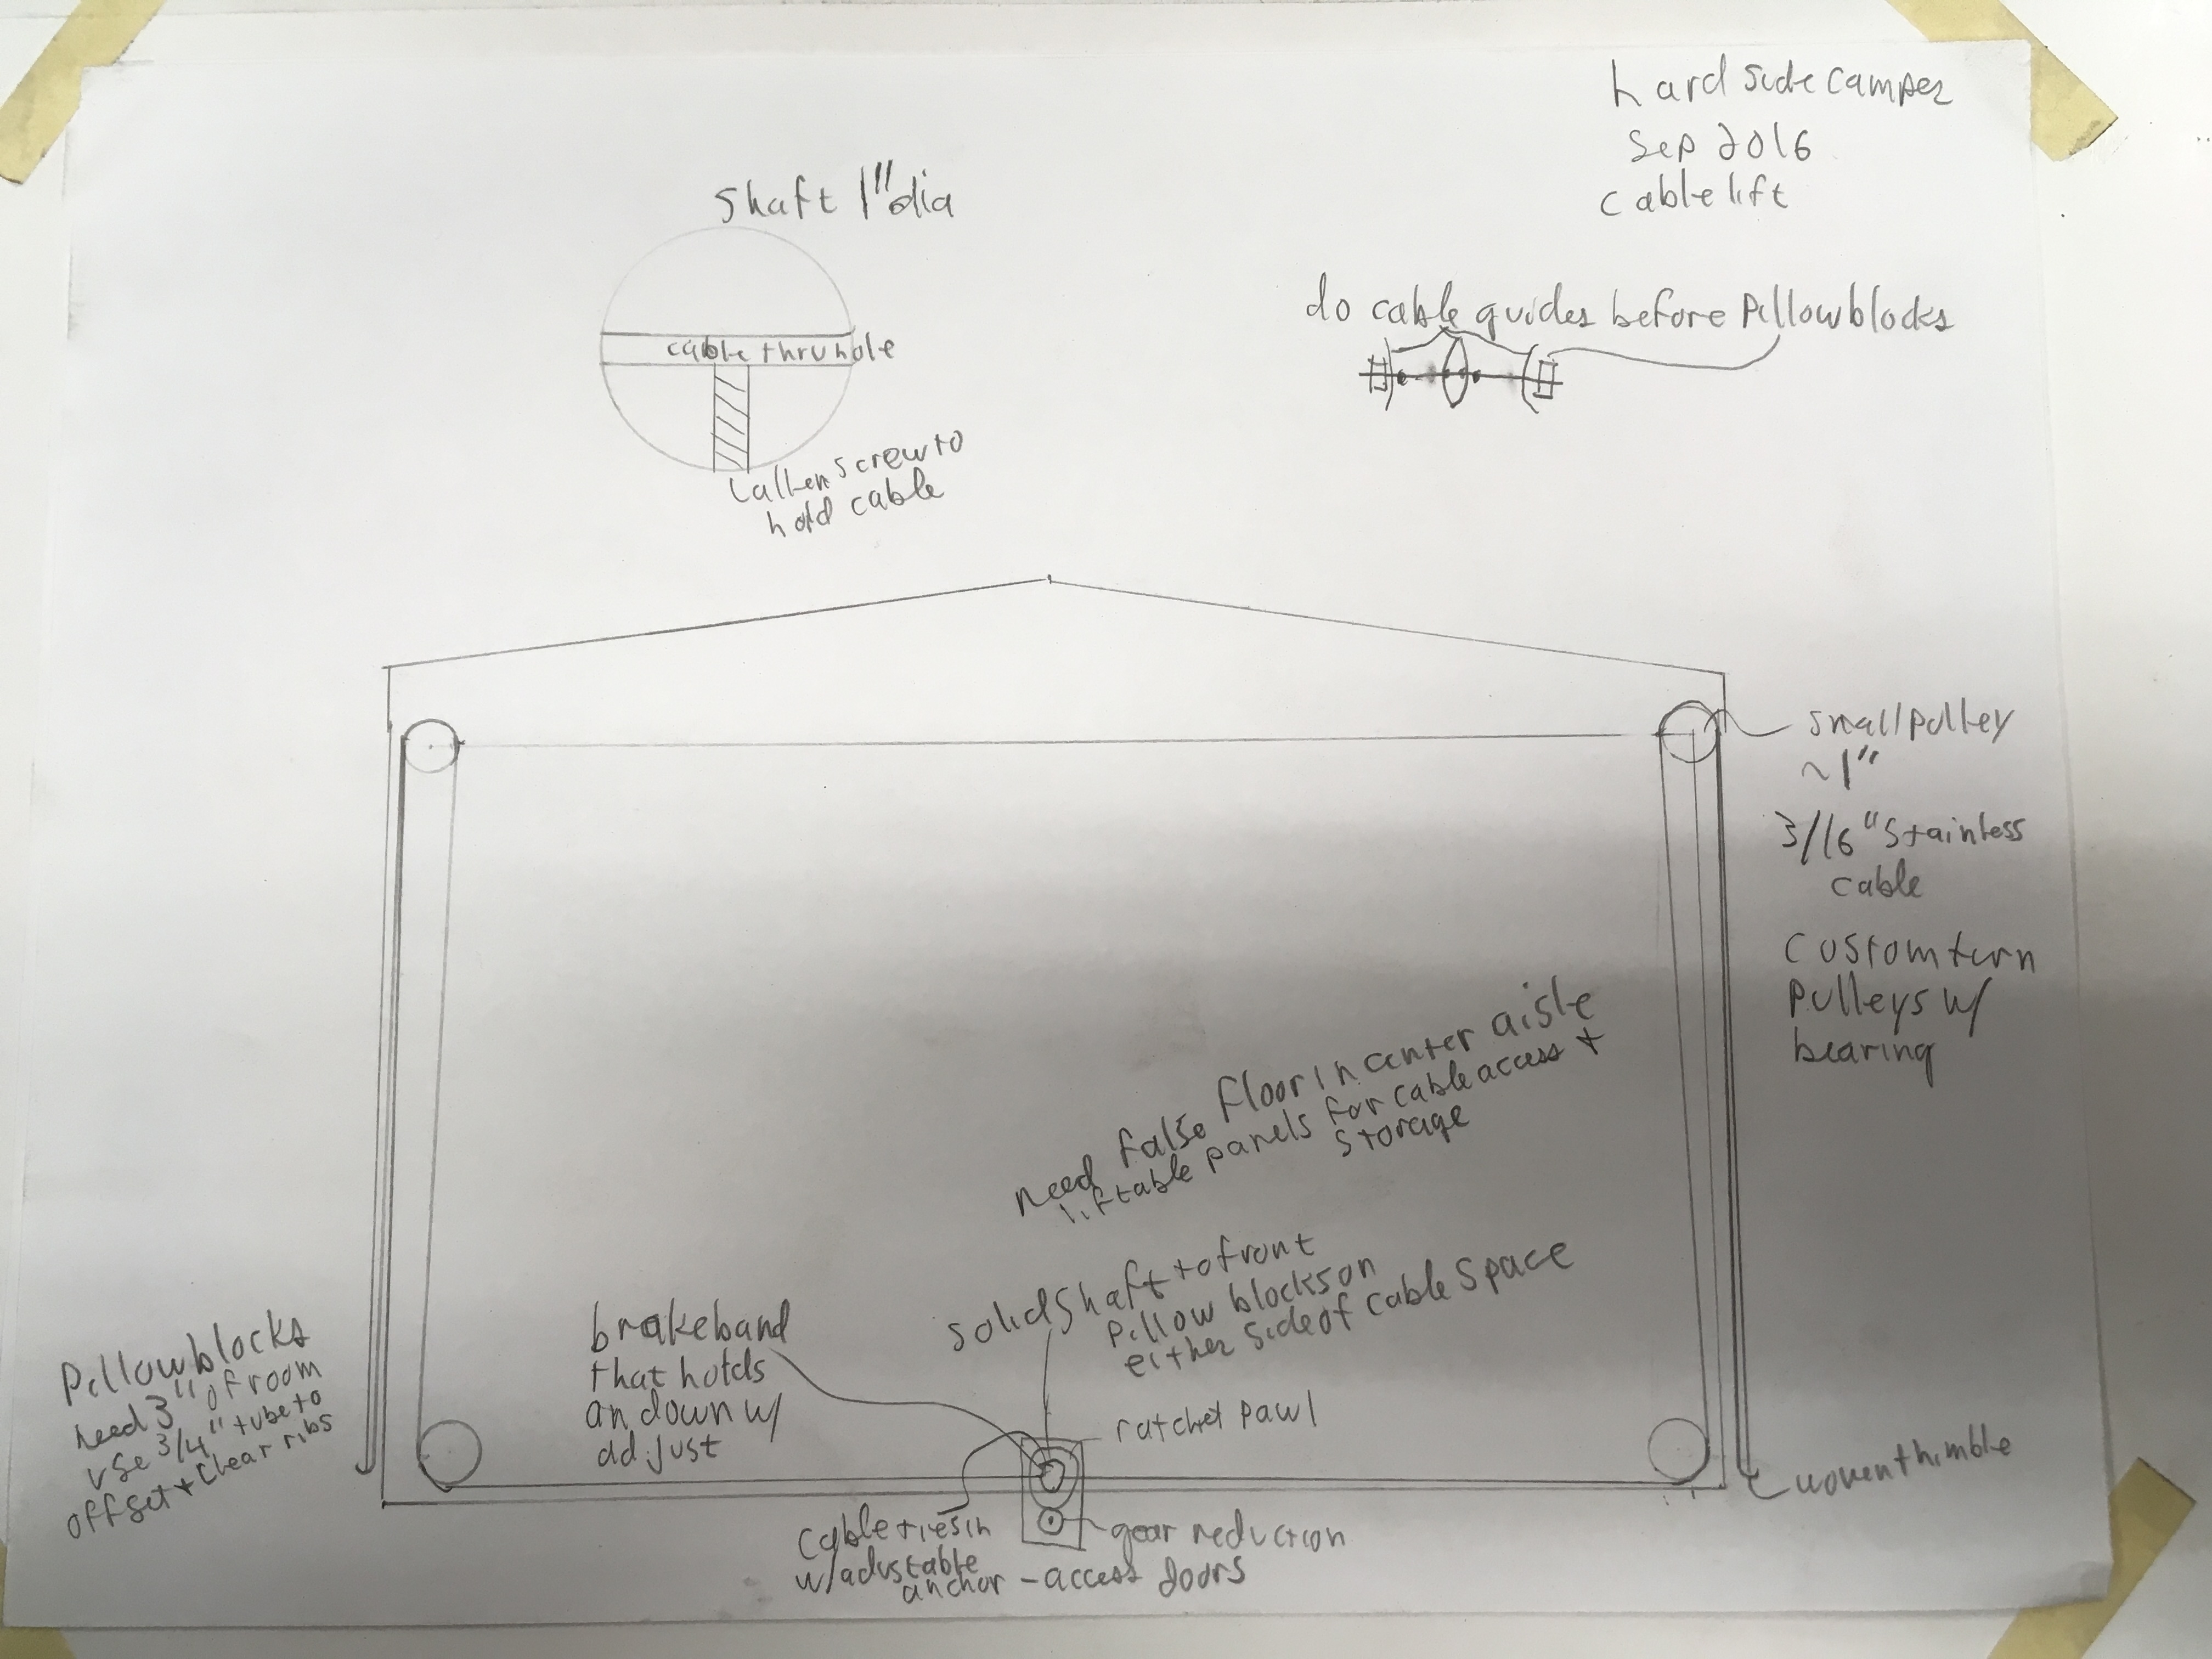 hard side camper
Sep 2016
cable lift
shaft 1" dia
cable thru hole
allen screw to
hold cable
do cable guides before Pillowblocks
small pulley
~1"
3/16" stainless
cable
custom turn
pulleys w/
bearing
need false floor in center aisle
liftable panels for cable access +
storage
solid shaft to front
pillow blocks on
either side of cable space
brakeband
that holds
an down w/
adjust
ratchet pawl
Pillowblocks
need 3" of room
use 3/4" tube to
offset + clear ribs
woven thimble
cable ties in
w/ adustable
anchor - access doors
gear reduction